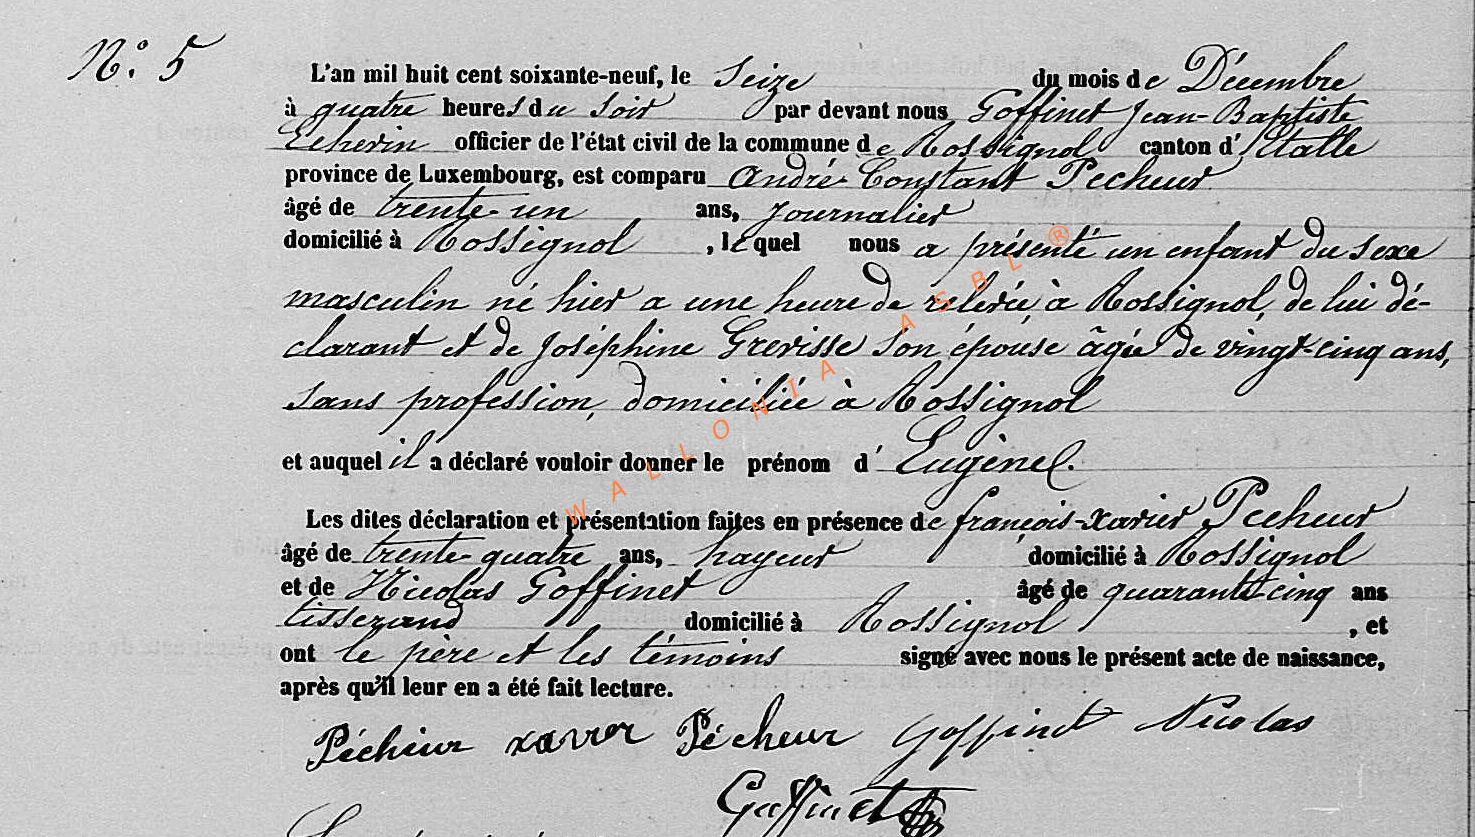 N.° 5
L'an mil huit cent soixante-neuf, le Seize du mois de Décembre
à quatre heures du soir par devant nous Goffinet Jean-Baptiste
Echevin officier de l'état civil de la commune de Rossignol canton d'Etalle
province de Luxembourg, est comparu André-Constant Pecheur
âgé de trente-un ans, journalier
domicilié à Rossignol, lequel nous a présenté un enfant du sexe
masculin né hier a une heure de relevée, à Rossignol, de lui dé-
clarant et de Joséphine Grevisse son épouse âgée de vingt-cinq ans,
sans profession, domiciliée à Rossignol
et auquel il a déclaré vouloir donner le prénom d'Eugène.
Les dites déclaration et présentation faites en présence de françois-xavier Pecheur
âgé de trente-quatre ans, hayeur domicilié à Rossignol
et de Nicolas Goffinet âgé de quarante-cinq ans
tisserand domicilié à Rossignol, et
ont le père et les témoins signé avec nous le présent acte de naissance,
après qu'il leur en a été fait lecture.
Pécheur xavier Pécheur Goffinet Nicolas
Goffinet
WALLONIA ASBL ®